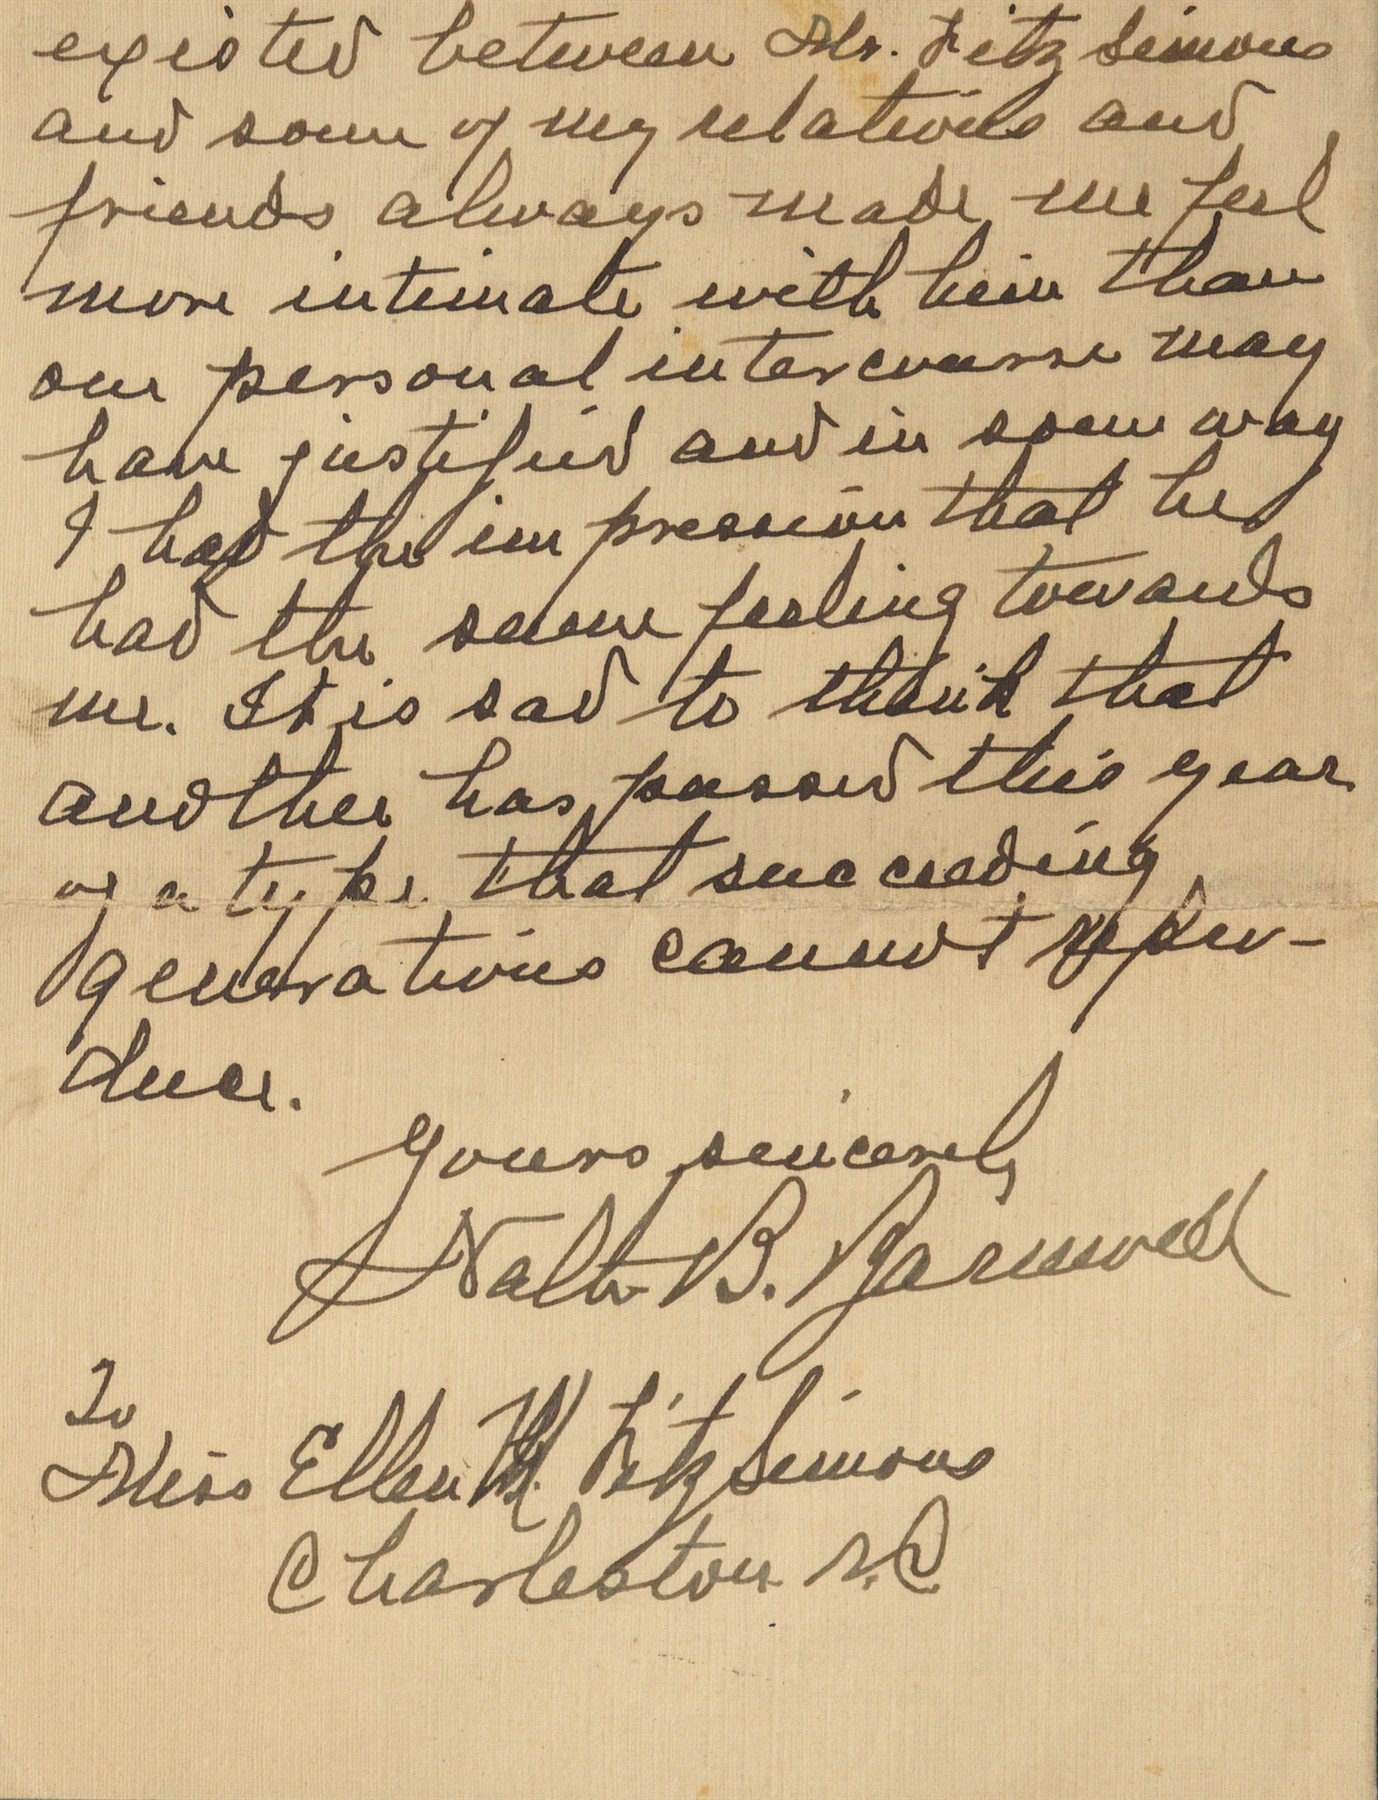 existed between Mr. Fitz Simons
and some of my relations and
friends always made me feel
more intimate with him than
our personal intercourse may
have justified and in some way
I had the impression that he
had the same feeling towards
me. It is sad to think that
another has passed this year
of a type that succeeding
generations cannot repro-
duce.
Yours sincerely
Nath B. Barnwell
To
Miss Ellen M. Fitz Simons
Charleston S.C.